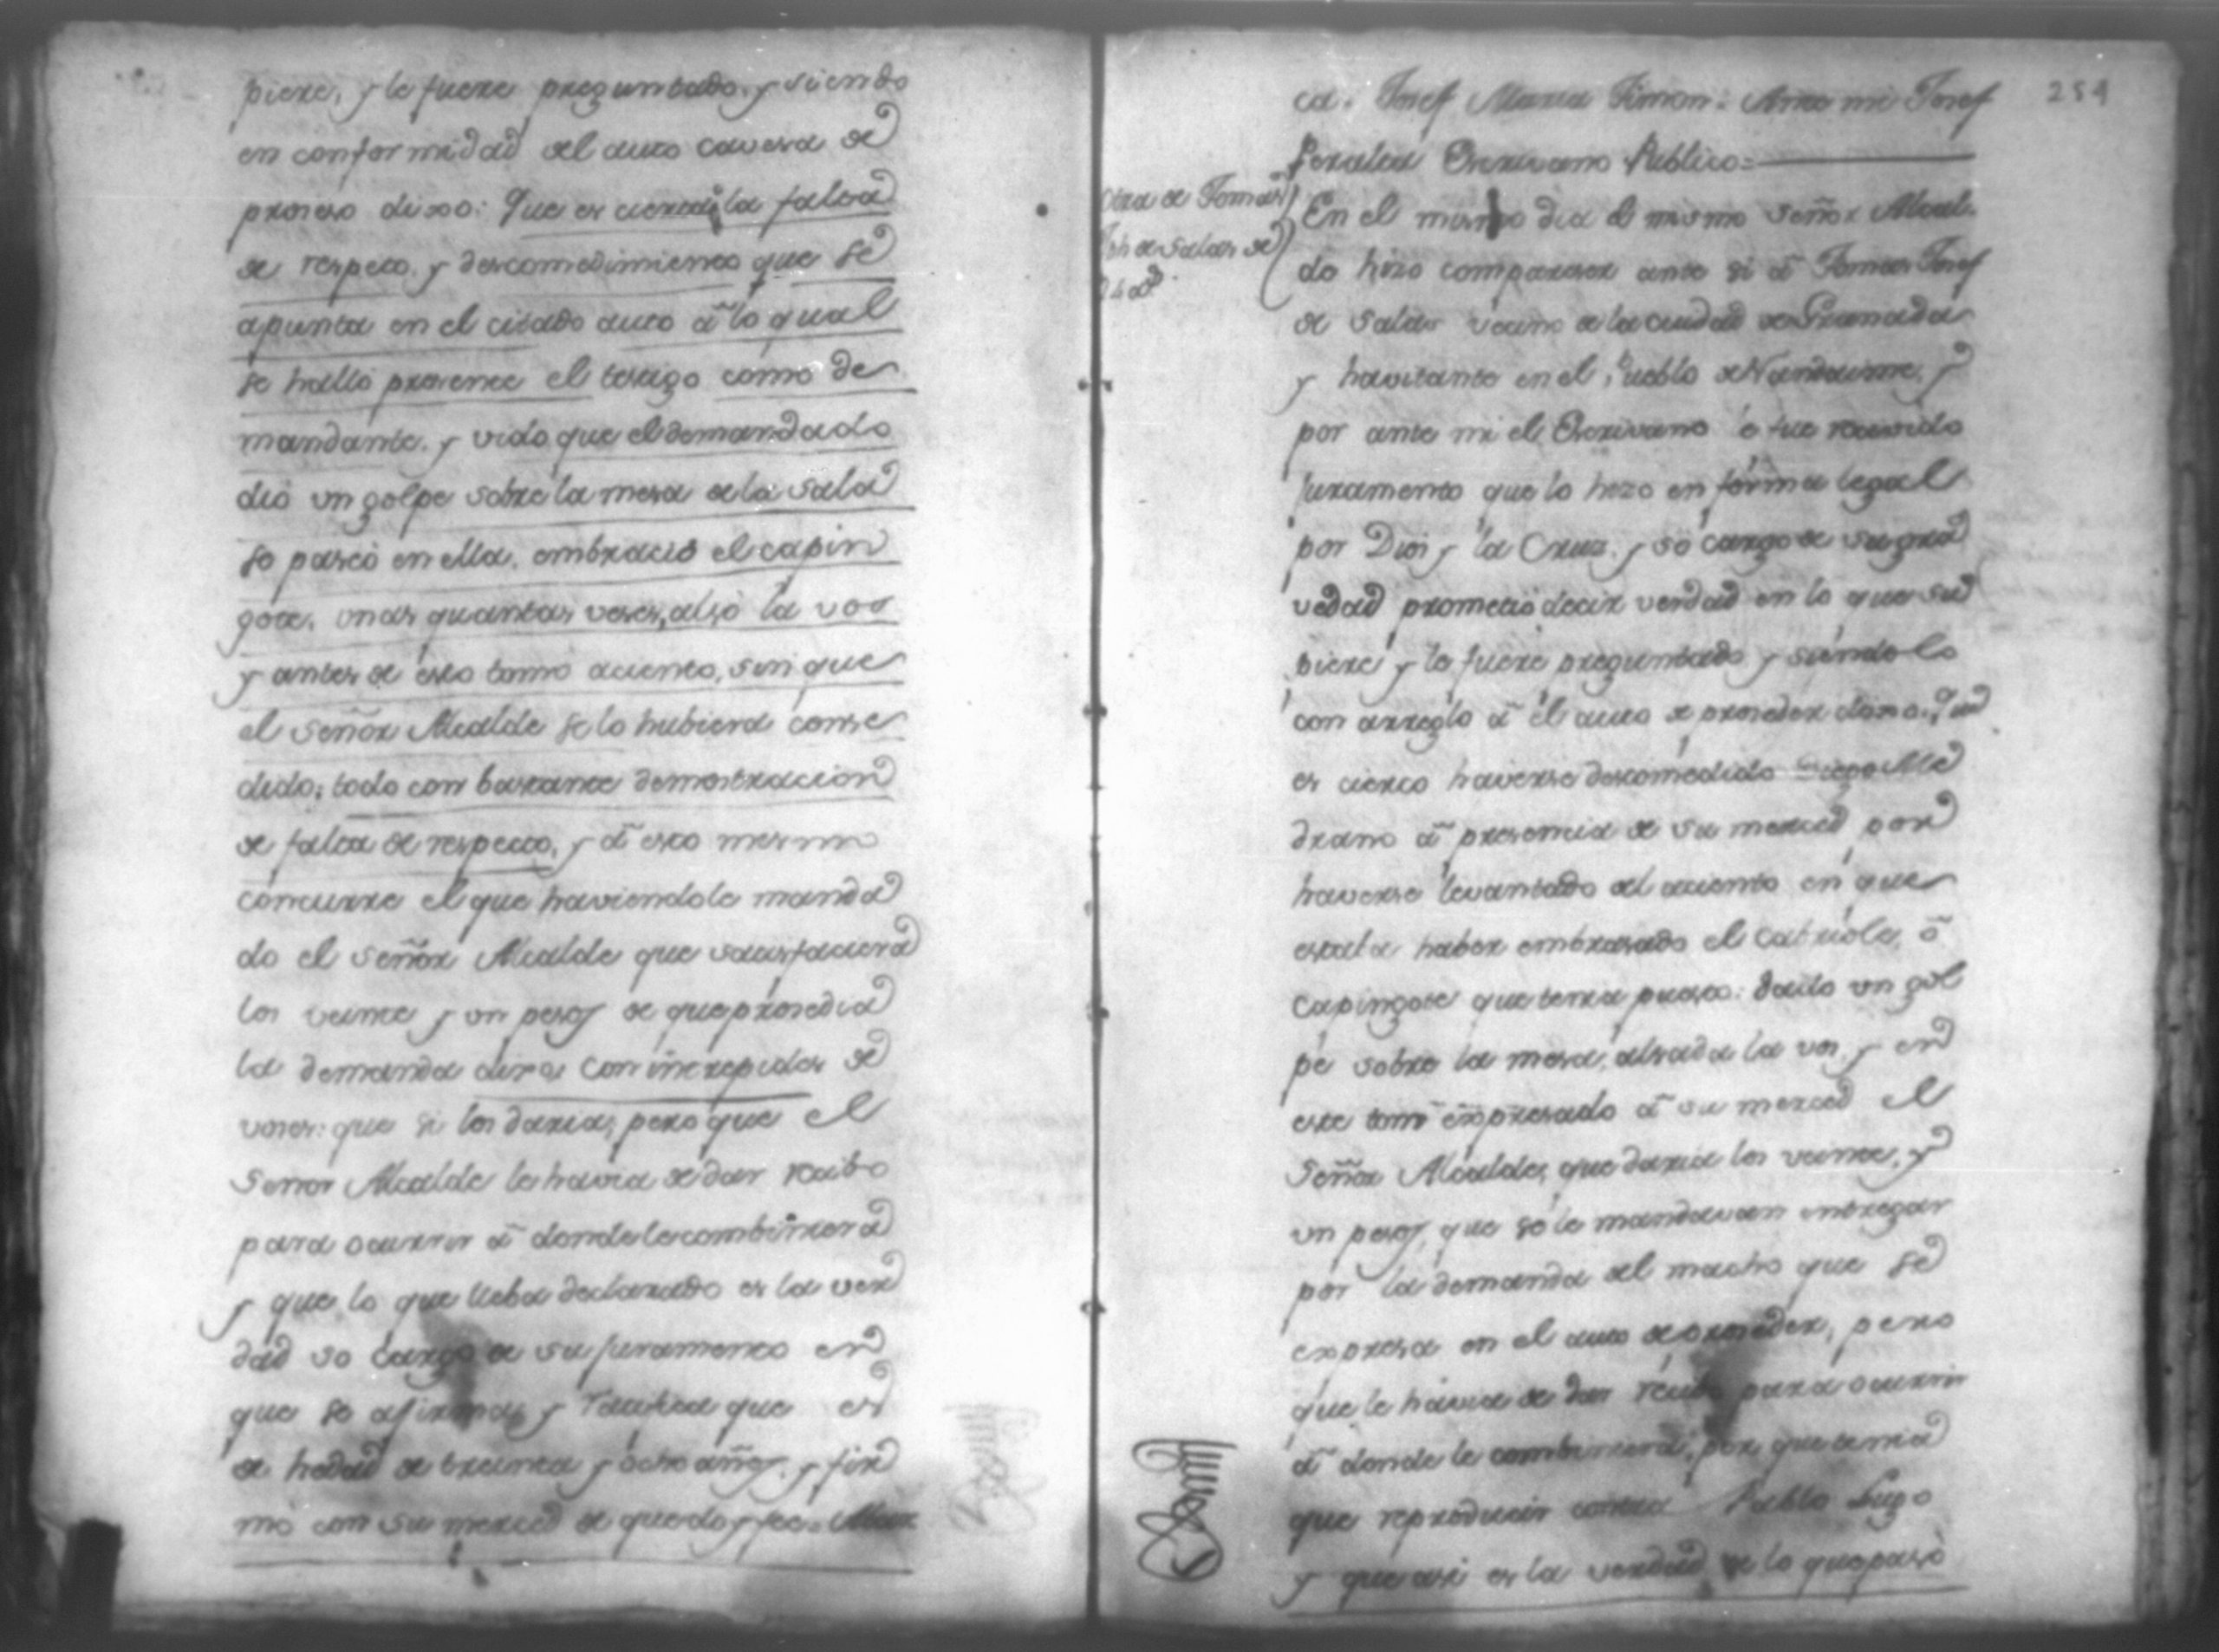 piere, y le fuere preguntado, y siendo
en conformidad del auto cavesa de
proseso dixo: Que es cierta la falta
de respeto, y descomedimiento que se
apunta en el citado auto â lo qual
se halló presente el testigo como de
mandante, y vido que el demandado
dió un golpe sobre la mesa de la sala
se paseó en ella, embració el capin
gote, unas quantas veses, alsó la vos
y antes de esto tomó aciento, sin que
el Señor Alcalde se lo hubiera conse
dido; todo con bastante demostracion
de falta de respecto, y â esto mesmo
concurre el que haviendole manda
do el Señor Alcalde que satisfaciera
los veinte y un pesos de que prosedia
la demanda dixo: con intrepidas de
voses: que si los daria, pero que el
Señor Alcalde le havia de dar recibo
para ocurrir â donde le combiniera
y que lo que lleba declarado es la ver
dad so cargo de su juramento en
que se afirma, y ratifica que es
de hedad de treinta y ocho años, y fir
mó con su merced de que doy fee. Mar
254
ca. Josef Maria Simon. Ante mi Josef
Peralta Escrivano Publico =
Otra de Tomas
Jph de Salas de
En el mismo dia el mismo Señor Alcal
de hizo compareser ante si â Tomas Josef
de Salas vecino de la ciudad de Granada
y havitante en el Pueblo de Nandaime, y
por ante mi el Escrivano le fue recivido
juramento que lo hizo en forma legal
por Dios y la Cruz, y so cargo de su gra
vedad prometió decir verdad en lo que su
piere y le fuere preguntado y siendolo
con arreglo â el auto de proseder dixo: Que
es cierto haverse descomedido Diego Me
drano â presencia de su merced por
haverse levantado del aciento en que
estaba haber embrasado el Cabriole, ô
capingote que tenia puesto: dado un gol
pe sobre la mesa, alsada la vos, y en
este tono expresado â su merced el
Señor Alcalde, que daria los veinte, y
un pesos, que se le mandavan entregar
por la demanda del macho que se
expresa en el auto de proseder, pero
que le havia de dar recibo para ocurrir
â donde le combiniera, por que tenia
que reproducir contra Pablo Lugo
y que asi es la verdad de lo que pasó